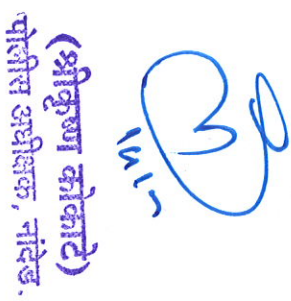 (श्रीकृष्ण कोकाटे)
पोलीस अधीक्षक, नांदेड.